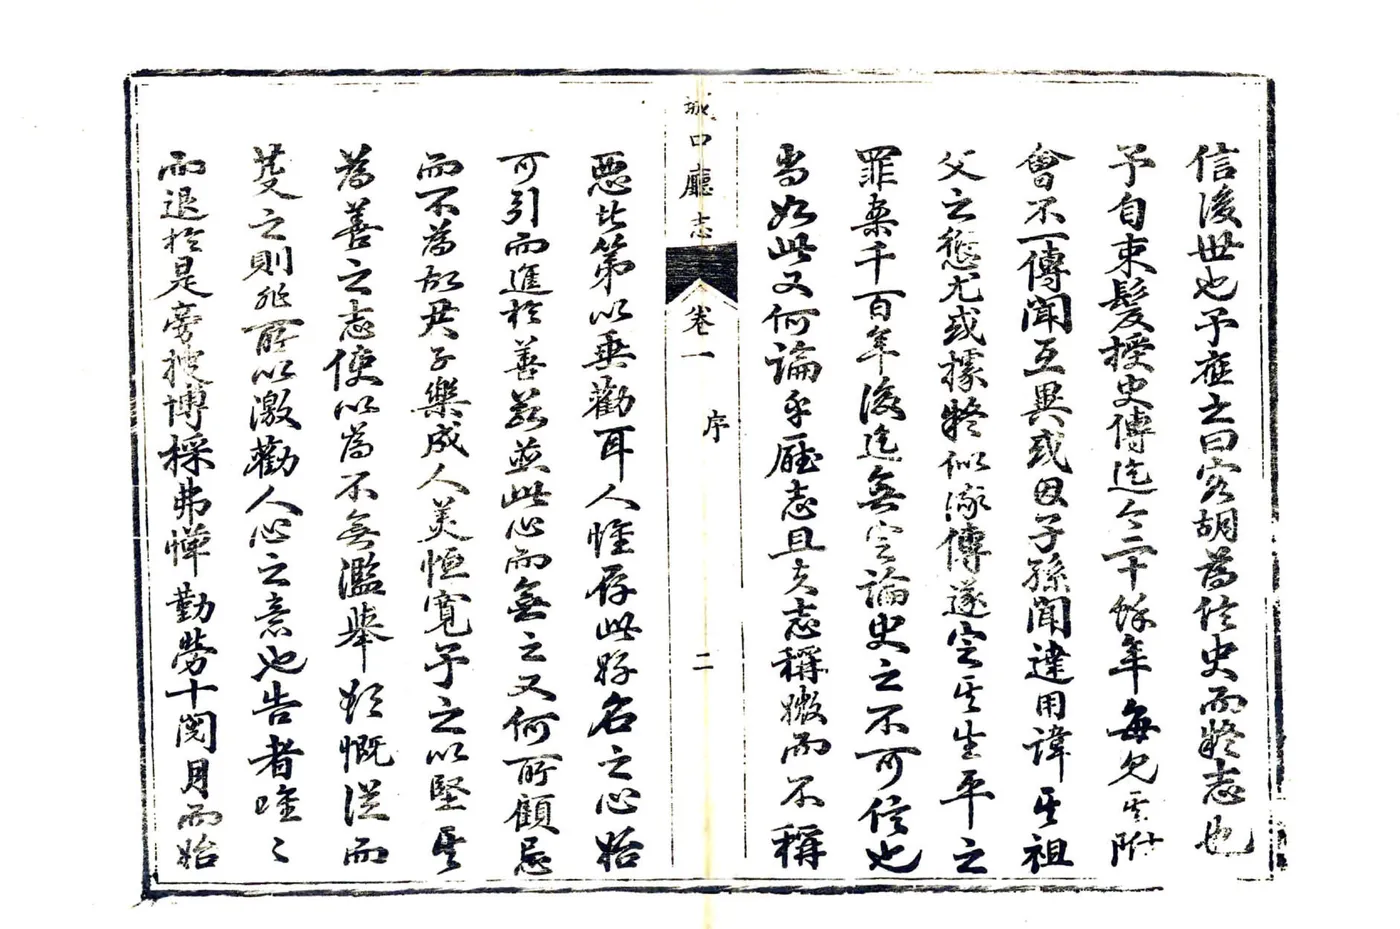 信後世也予應之曰客胡為信史而疑志也
予自束髮授史傳迄今二十餘年每見其附
會不一傳聞互異或因子孫聞達用諱其祖
父之愆尤或據疑似流傳遂定其生平之
罪案千百年後迄無定論史之不可信也
尚如此又何論乎廳志且夫志稱媺而不稱
惡此第以垂勸耳人惟存此好名之心始
可引而進於善茲並此心而無之又何所顧忌
而不為故君子樂成人美恒寬予之以堅其
為善之志使以為不無濫舉 慨從而
芟之則非所以激勸人心之意也告者唯唯
而退於是旁搜博採弗憚勤勞十閱月而始
城口廳志
卷一
序
二